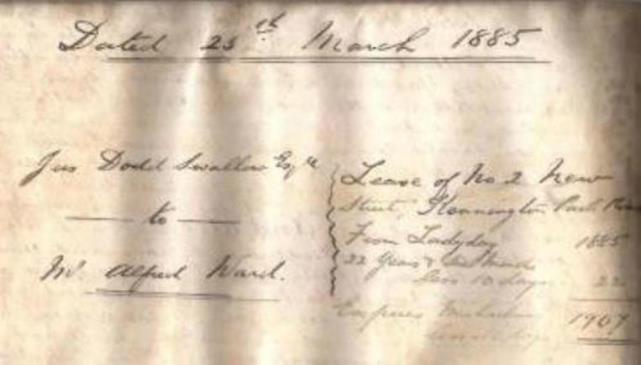 Dated 25th March 1885
Jas Dodd Swallow Esqre
to
Mr. Alfred Ward.
Lease of No. 2 New
Street, Kennington Park Road
From Ladyday 1885
22 Years &
less 10 days 22
Expires 1907